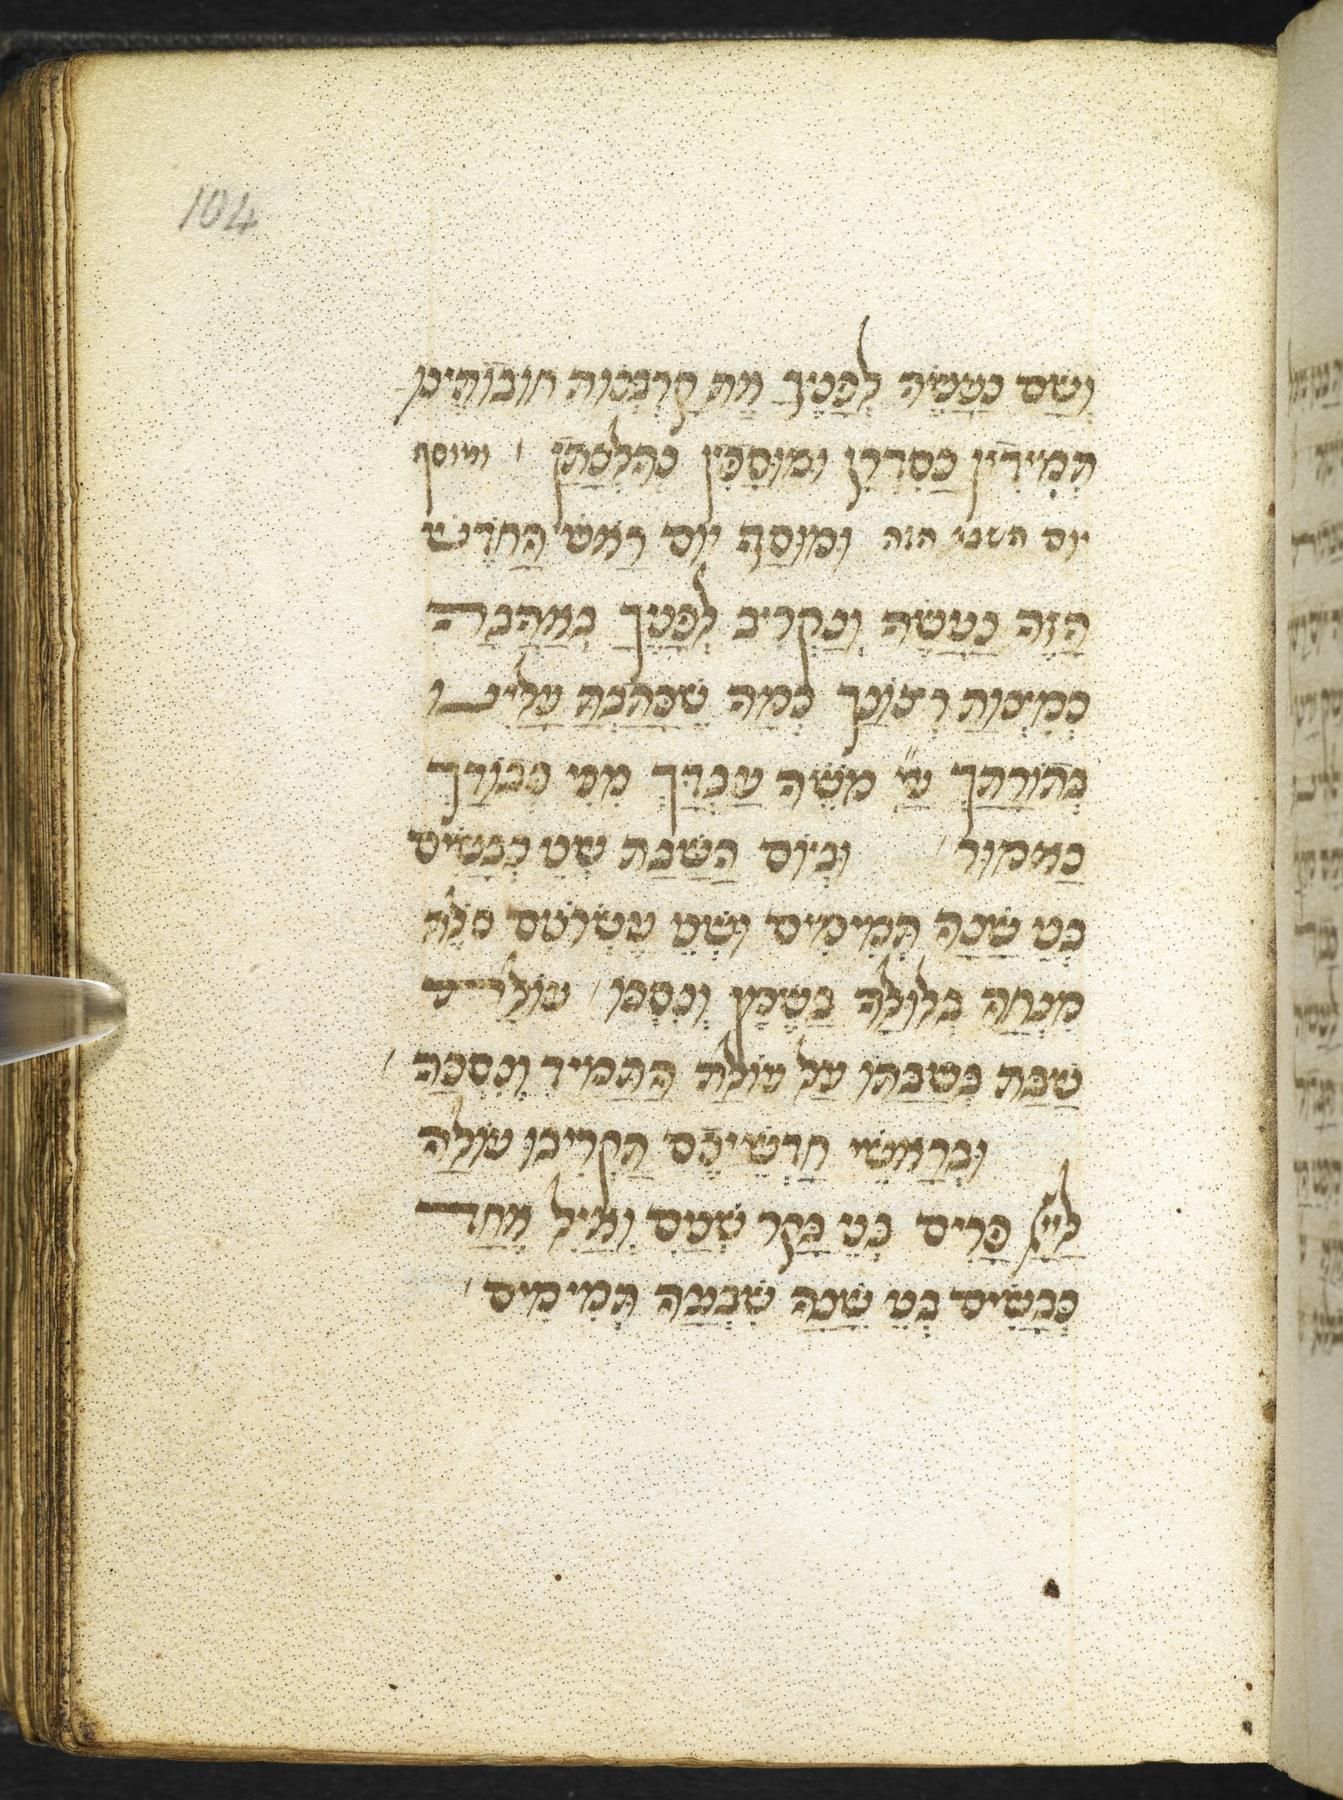 104
וְשָׁם נַעֲשֶׂה לְפָנֶיךָ אֶת קָרְבְּנוֹת חוֹבוֹתֵינוּ
תְּמִידִין כְּסִדְרָן וּמוּסָפִין כְּהִלְכָתָן ומוסף
יום השבת הזה וּמוּסַף יוֹם רֹאשׁ הַחֹדֶשׁ
הַזֶּה נַעֲשֶׂה וְנַקְרִיב לְפָנֶיךָ בְּאַהֲבָה
כְּמִצְוַת רְצוֹנָךְ כְּמָה שֶׁכָּתַבְתָּ עָלֵינוּ
בְּתוֹרָתָךְ עַ״י מֹשֶׁה עַבְדָּךְ מִפִּי כְבוֹדָךְ
כָּאָמוּר וּבְיוֹם הַשַּׁבָּת שְׁנֵי כְבָשִׂים
בְּנֵי שָׁנָה תְּמִימִים וּשְׁנֵי עֶשְׂרֹנִים סֹלֶת
מִנְחָה בְּלוּלָה בַשֶּׁמֶן וְנִסְכּוֹ עוֹלַת
שַׁבַּת בְּשַׁבַּתּוֹ עַל עוֹלַת הַתָּמִיד וְנִסְכָּהּ
וּבְרָאשֵׁי חָדְשֵׁיכֶם תַּקְרִיבוּ עוֹלָה
לַייָ פָּרִים בְּנֵי בָקָר שְׁנַיִם וְאַיִל אֶחָד
כְּבָשִׂים בְּנֵי שָׁנָה שִׁבְעָה תְּמִימִים